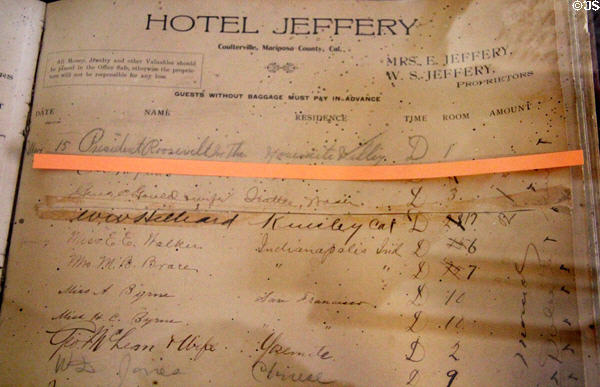 HOTEL JEFFERY
Coulterville, Mariposa County, Cal.,
MRS. E. JEFFERY,
W. S. JEFFERY,
PROPRIETORS
All Money, Jewelry and other Valuables should
be placed in the Office Safe, otherwise the proprie-
tors will not be responsible for any loss.
GUESTS WITHOUT BAGGAGE MUST PAY IN ADVANCE
DATE NAME RESIDENCE TIME ROOM AMOUNT
15 President Roosevelt Yosemite Valley D 1
& wife 3
Hilliard Kinsley Cal D
Miss E. E. Walker Indianapolis Ind D 6
Mrs M. B. Brace " " 7
Miss A Byrne San Francisco D 10
Miss H. C. Byrne " D 10
Geo McLean & Wife Yosemite D 2
Jones Chinese D 9
©JS